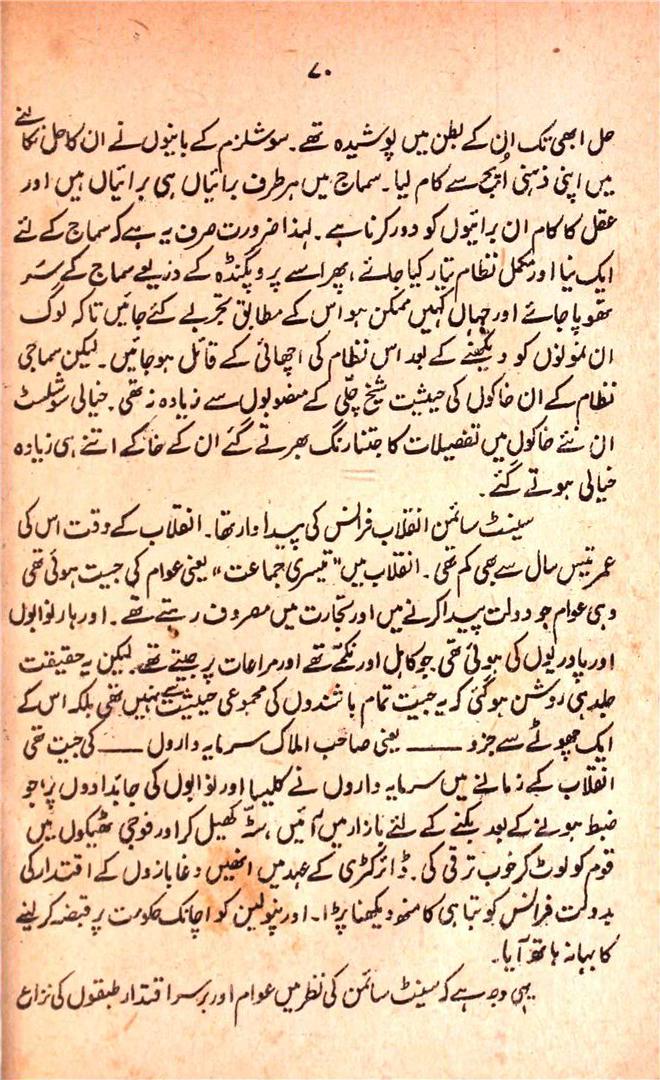 ۷۰
حل ابھی تک اُن کے بطن میں پوشیدہ تھے۔ سوشلزم کے بانیوں نے ان کا حل نکالنے
میں اپنی ذہنی اُپج سے کام لیا۔ سماج میں ہر طرف برائیاں ہی برائیاں ہیں اور
عقل کا کام ان برائیوں کو دور کرنا ہے۔ لہٰذا ضرورت صرف یہ ہے کہ سماج کے لئے
ایک نیا اور مکمل نظام تیار کیا جائے، پھر اسے پروپگنڈہ کے ذریعے سماج کے سَر
تھوپا جائے اور جہاں کہیں ممکن ہو اس کے مطابق تجربے کئے جائیں تاکہ لوگ
ان نمونوں کو دیکھنے کے بعد اس نظام کی اچھائی کے قائل ہو جائیں۔ لیکن سماجی
نظام کے ان خاکوں کی حیثیت شیخ چلّی کے منصوبوں سے زیادہ نہ تھی۔ خیالی سوشلسٹ
ان نئے خاکوں میں تفصیلات کا جتنا رنگ بھرتے گئے ان کے خاکے اتنے ہی زیادہ
خیالی ہوتے گئے۔
سینٹ سائمن انقلاب فرانس کی پیداوار تھا۔ انقلاب کے وقت اس کی
عمر تیس سال سے بھی کم تھی۔ انقلاب میں "تیسری جماعت" یعنی عوام کی جیت ہوئی تھی
وہی عوام جو دولت پیدا کرنے میں اور تجارت میں مصروف رہتے تھے۔ اور ہار نوابوں
اور پادریوں کی ہوئی تھی جو کاہل اور نکمّے تھے اور مراعات پر جیتے تھے۔ لیکن یہ حقیقت
جلد ہی روشن ہو گئی کہ یہ جیت تمام باشندوں کی مجموعی حیثیت سے نہیں تھی بلکہ اس کے
ایک چھوٹے سے جزو —— یعنی صاحب املاک سرمایہ داروں —— کی جیت تھی
انقلاب کے زمانے میں سرمایہ داروں نے کلیسا اور نوابوں کی جائدادوں پر، جو
ضبط ہونے کے بعد بکنے کے لئے بازار میں آئیں، سٹّہ کھیل کر اور فوجی ٹھیکوں میں
قوم کو لوٹ کر خوب ترقی کی۔ ڈائرکٹری کے عہد میں انھیں دغا بازوں کے اقتدار کی
بدولت فرانس کو تباہی کا منھ دیکھنا پڑا۔ اور نپولین کو اچانک حکومت پر قبضہ کر لینے
کا بہانہ ہاتھ آیا۔
یہی وجہ ہے کہ سینٹ سائمن کی نظر میں عوام اور برسر اقتدار طبقوں کی نزاع